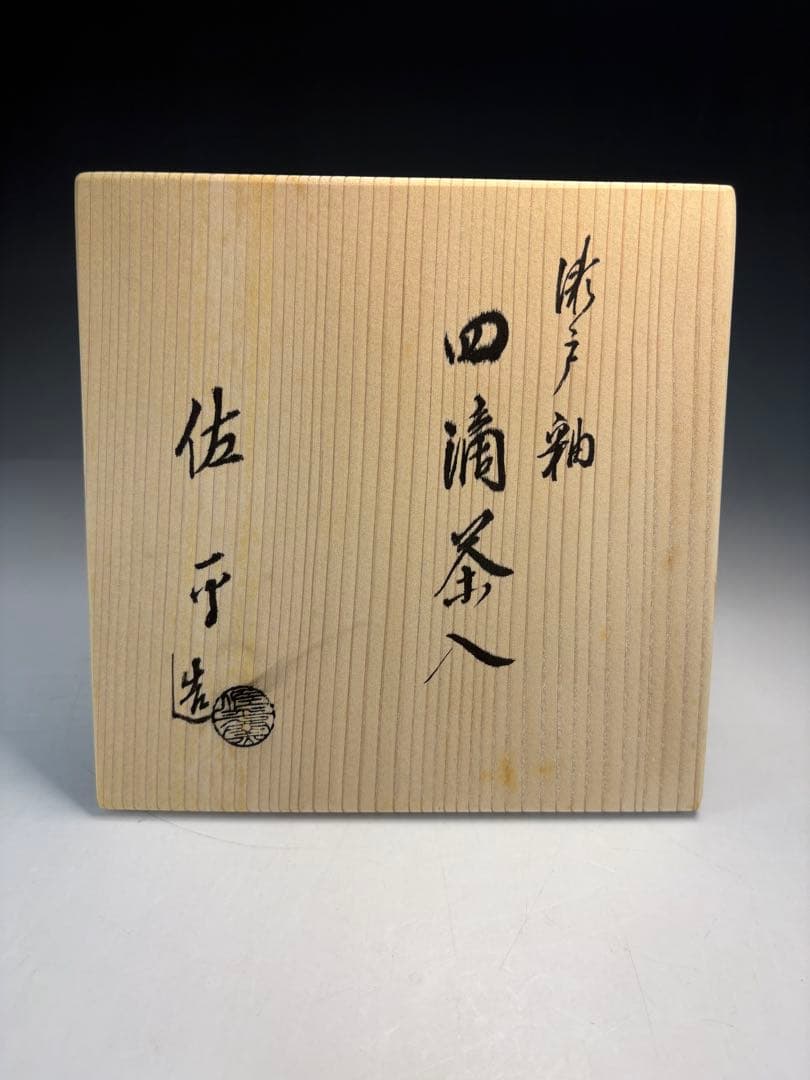 瀬戸釉
四滴茶入
佐平造